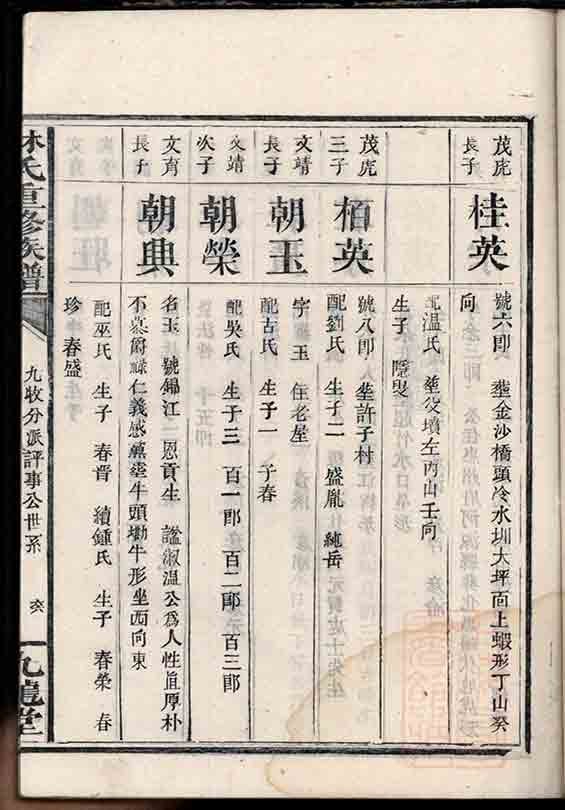 茂虎
長子
桂英
號六郎 塟金沙橋頭冷水圳大坪面上蝦形丁山癸
向
配温氏 塟父墳左丙山壬向
生子 隱叟
茂虎
三子
栢英
號八郎 塟許子村
配劉氏 生子二 盛胤 純岳
文靖
長子
朝玉
字 玉 住老屋
配古氏 生子一 子春
文靖
次子
朝榮
配吳氏 生子三 百一郎 百二郎 百三郎
文育
長子
朝典
名玉 號錦江 恩貢生 謚淑温公爲人性眞厚朴
不慕爵祿仁義感薰塟牛頭㘭牛形坐西向東
配巫氏 生子 春晋 續鍾氏 生子 春榮 春
珍 春盛
林氏重修族譜
九牧分派評事公世系
九龍堂